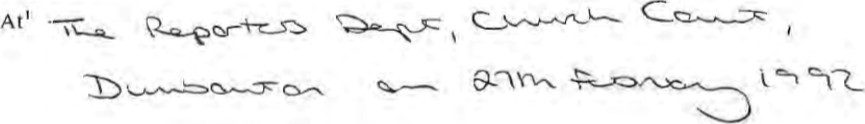 At¹ The Reporters Dept, Church Court,
Dumbarton on 27th February 1992